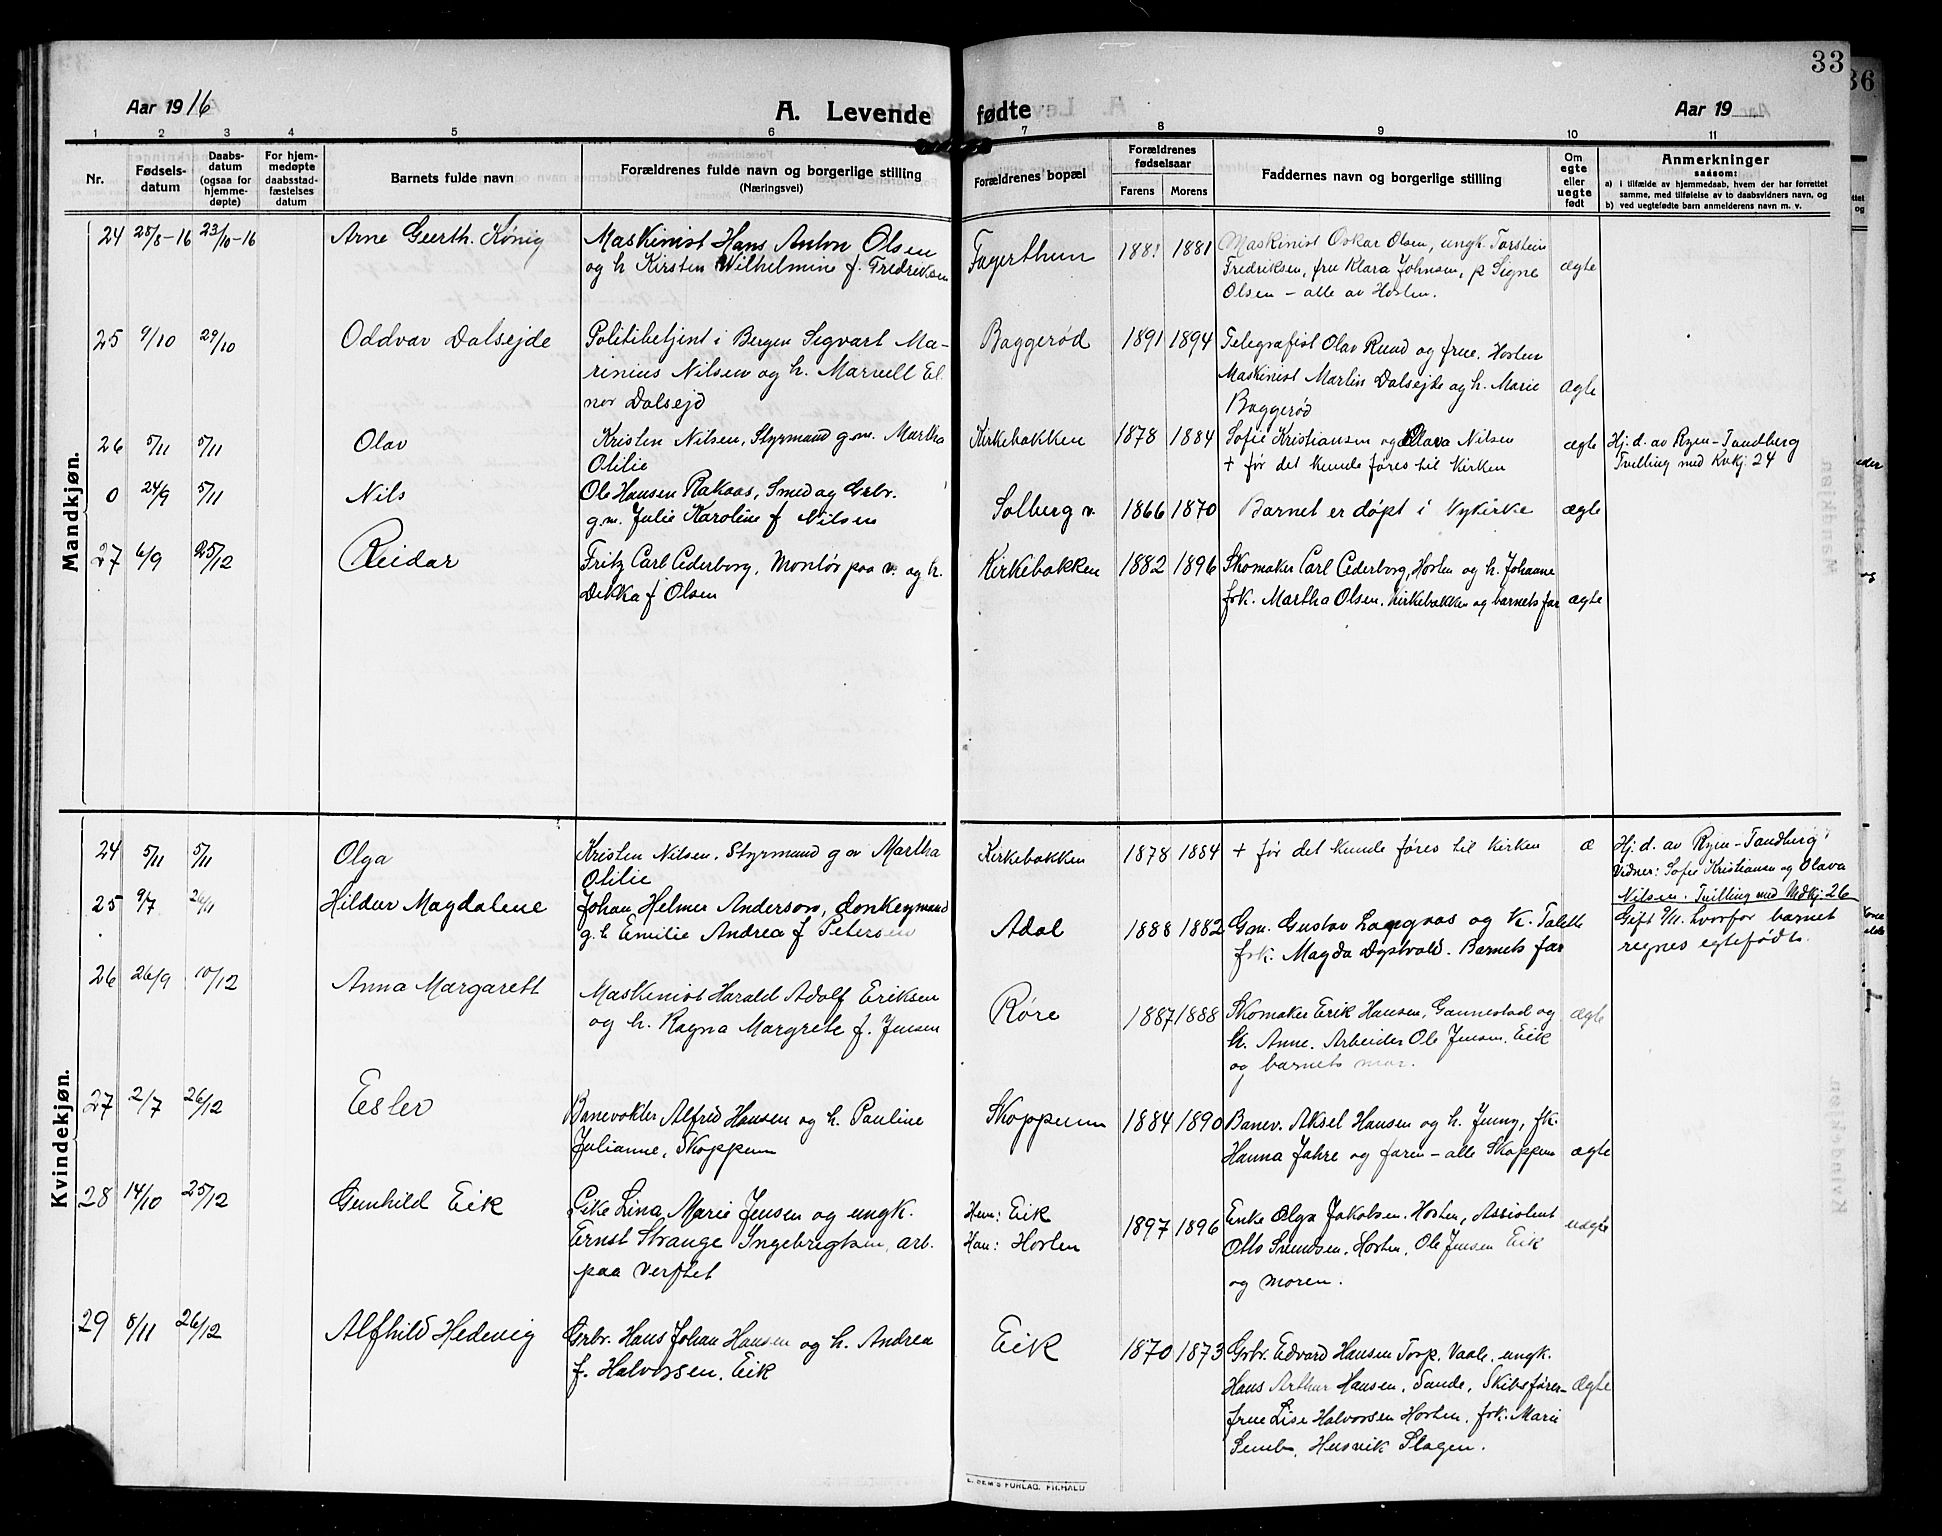 33
36
Aar 1916
A. Levende fødte
Aar 19
1 2 3 4 5 6 7 8 9 10 11
Nr.
Fødsels-
datum
Daabs-
datum
(ogsaa for
hjemme-
døpte)
For hjem-
medøpte
daabsstad-
fæstelses
datum
Barnets fulde navn
Forældrenes fulde navn og borgerlige stilling
(Næringsvei)
Forældrenes bopæl
Forældrenes
fødselsaar
Farens Morens
Faddernes navn og borgerlige stilling
Om
egte
eller
uegte
født
Anmerkninger
saasom:
a) i tilfælde av hjemmedaab, hvem der har forrettet
samme, med tilføielse av to daabsvidners navn, og
b) ved uegtefødte barn anmelderens navn m. v.
Mandkjøn.
24 25/8-16 23/10-16 Arne Geerth. König
Maskinist Hans Anton Olsen
og h. Kirsten Wilhelmine f. Fredriksen
Fagerthun 1881 1881
Maskinist Oskar Olsen, ungk. Torstein
Fredriksen, frue Klara Johnsen, p Signe
Olsen – alle av Horten.
ægte
25 9/10 29/10 Oddvar Dalsejde
Politibetjent i Bergen Sigvart Ma-
rinius Nilsen og h. Marnell El.
nor Dalsejd
Baggerød 1891 1894
Telegrafist Olav Ruud og frue. Horten
Maskinist Martin Dalsejde og h. Marie
Baggerød
ægte
26 5/11 5/11 Olav
Kristen Nilsen, Styrmand g. m. Martha
Otilie
Kirkebakken 1878 1884
Sofie Kristiansen og Olava Nilsen
+ før det kunde føres til Kirken
ægte
Hj. d. av Ryen-Tandberg
Tvilling med Kvkj. 24
0 24/9 5/11 Nils
Ole Hansen Rakaas, Smed og Grbr.
g. m. Julie Karoline f Nilsen
Solberg v. 1866 1870
Barnet er døpt i Nykirke
ægte
27 6/9 25/12 Reidar
Fritz Carl Cederborg, Montør paa v. og h.
Dekka f Olsen
Kirkebakken 1882 1896
Skomaker Carl Cederborg, Horten og h. Johanne
frk. Martha Olsen, Kirkebakken og barnets far
ægte
Kvindekjøn.
24 5/11 5/11 Olga
Kristen Nilsen, Styrmand g m Martha
Otilie
Kirkebakken 1878 1884
+ før det kunde føres til Kirken
æ
Hj. d. av Ryen-Tandberg
Vidner: Sofie Kristiansen og Olava
Nilsen. Tvilling med Mdkj. 26
25 9/7 26/11 Hildur Magdalene
Johan Helmer Anderson, donkeymand
g. h Emilie Andrea f Petersen
Adal 1888 1882
Gm. Gustav Langaas og K. Talette
frk. Magda Dystvold. Barnets far
Gift 9/11. hvorfor barnet
regnes egtefødt.
26 26/9 10/12 Anna Margarett
Maskinist Harald Adolf Eriksen
og h. Ragna Margrete f. Jensen
Røre 1887 1888
Skomaker Erik Hansen, Gannestad og
K. Anne. Arbeider Ole Jensen, Eik
og barnets mor.
ægte
27 2/7 26/12 Ester
Banevokter Alfred Hansen og h. Pauline
Julianne, Skoppum
Skoppum 1884 1890
Banev. Aksel Hansen og h. Jenny, fk.
Hanna Jahre og faren – alle Skoppum
ægte
28 14/10 25/12 Gunhild Eik
Pike Lina Marie Jensen og ungk.
Ernst Strange Ingebrigtsen, arb.
paa verftet
Hun: Eik
Han: Horten
1897 1896
Enke Olga Jakobsen. Horten, Assistent
Otto Svendsen, Horten, Ole Jensen Eik
og moren.
uægte
29 8/11 26/12 Alfhild Hedevig
Grbr. Hans Johan Hansen og h. Andrea
f. Halvorsen. Eik
Eik 1870 1873
Grbr. Edvard Hansen Torp. Vaale. ungk.
Hans Arthur Hansen, Sande, Skibsfører-
frue Lise Halvorsen Horten, frk. Marie
Semb, Husvik Slagen.
ægte
E. SEM'S FORLAG. FR.HALD